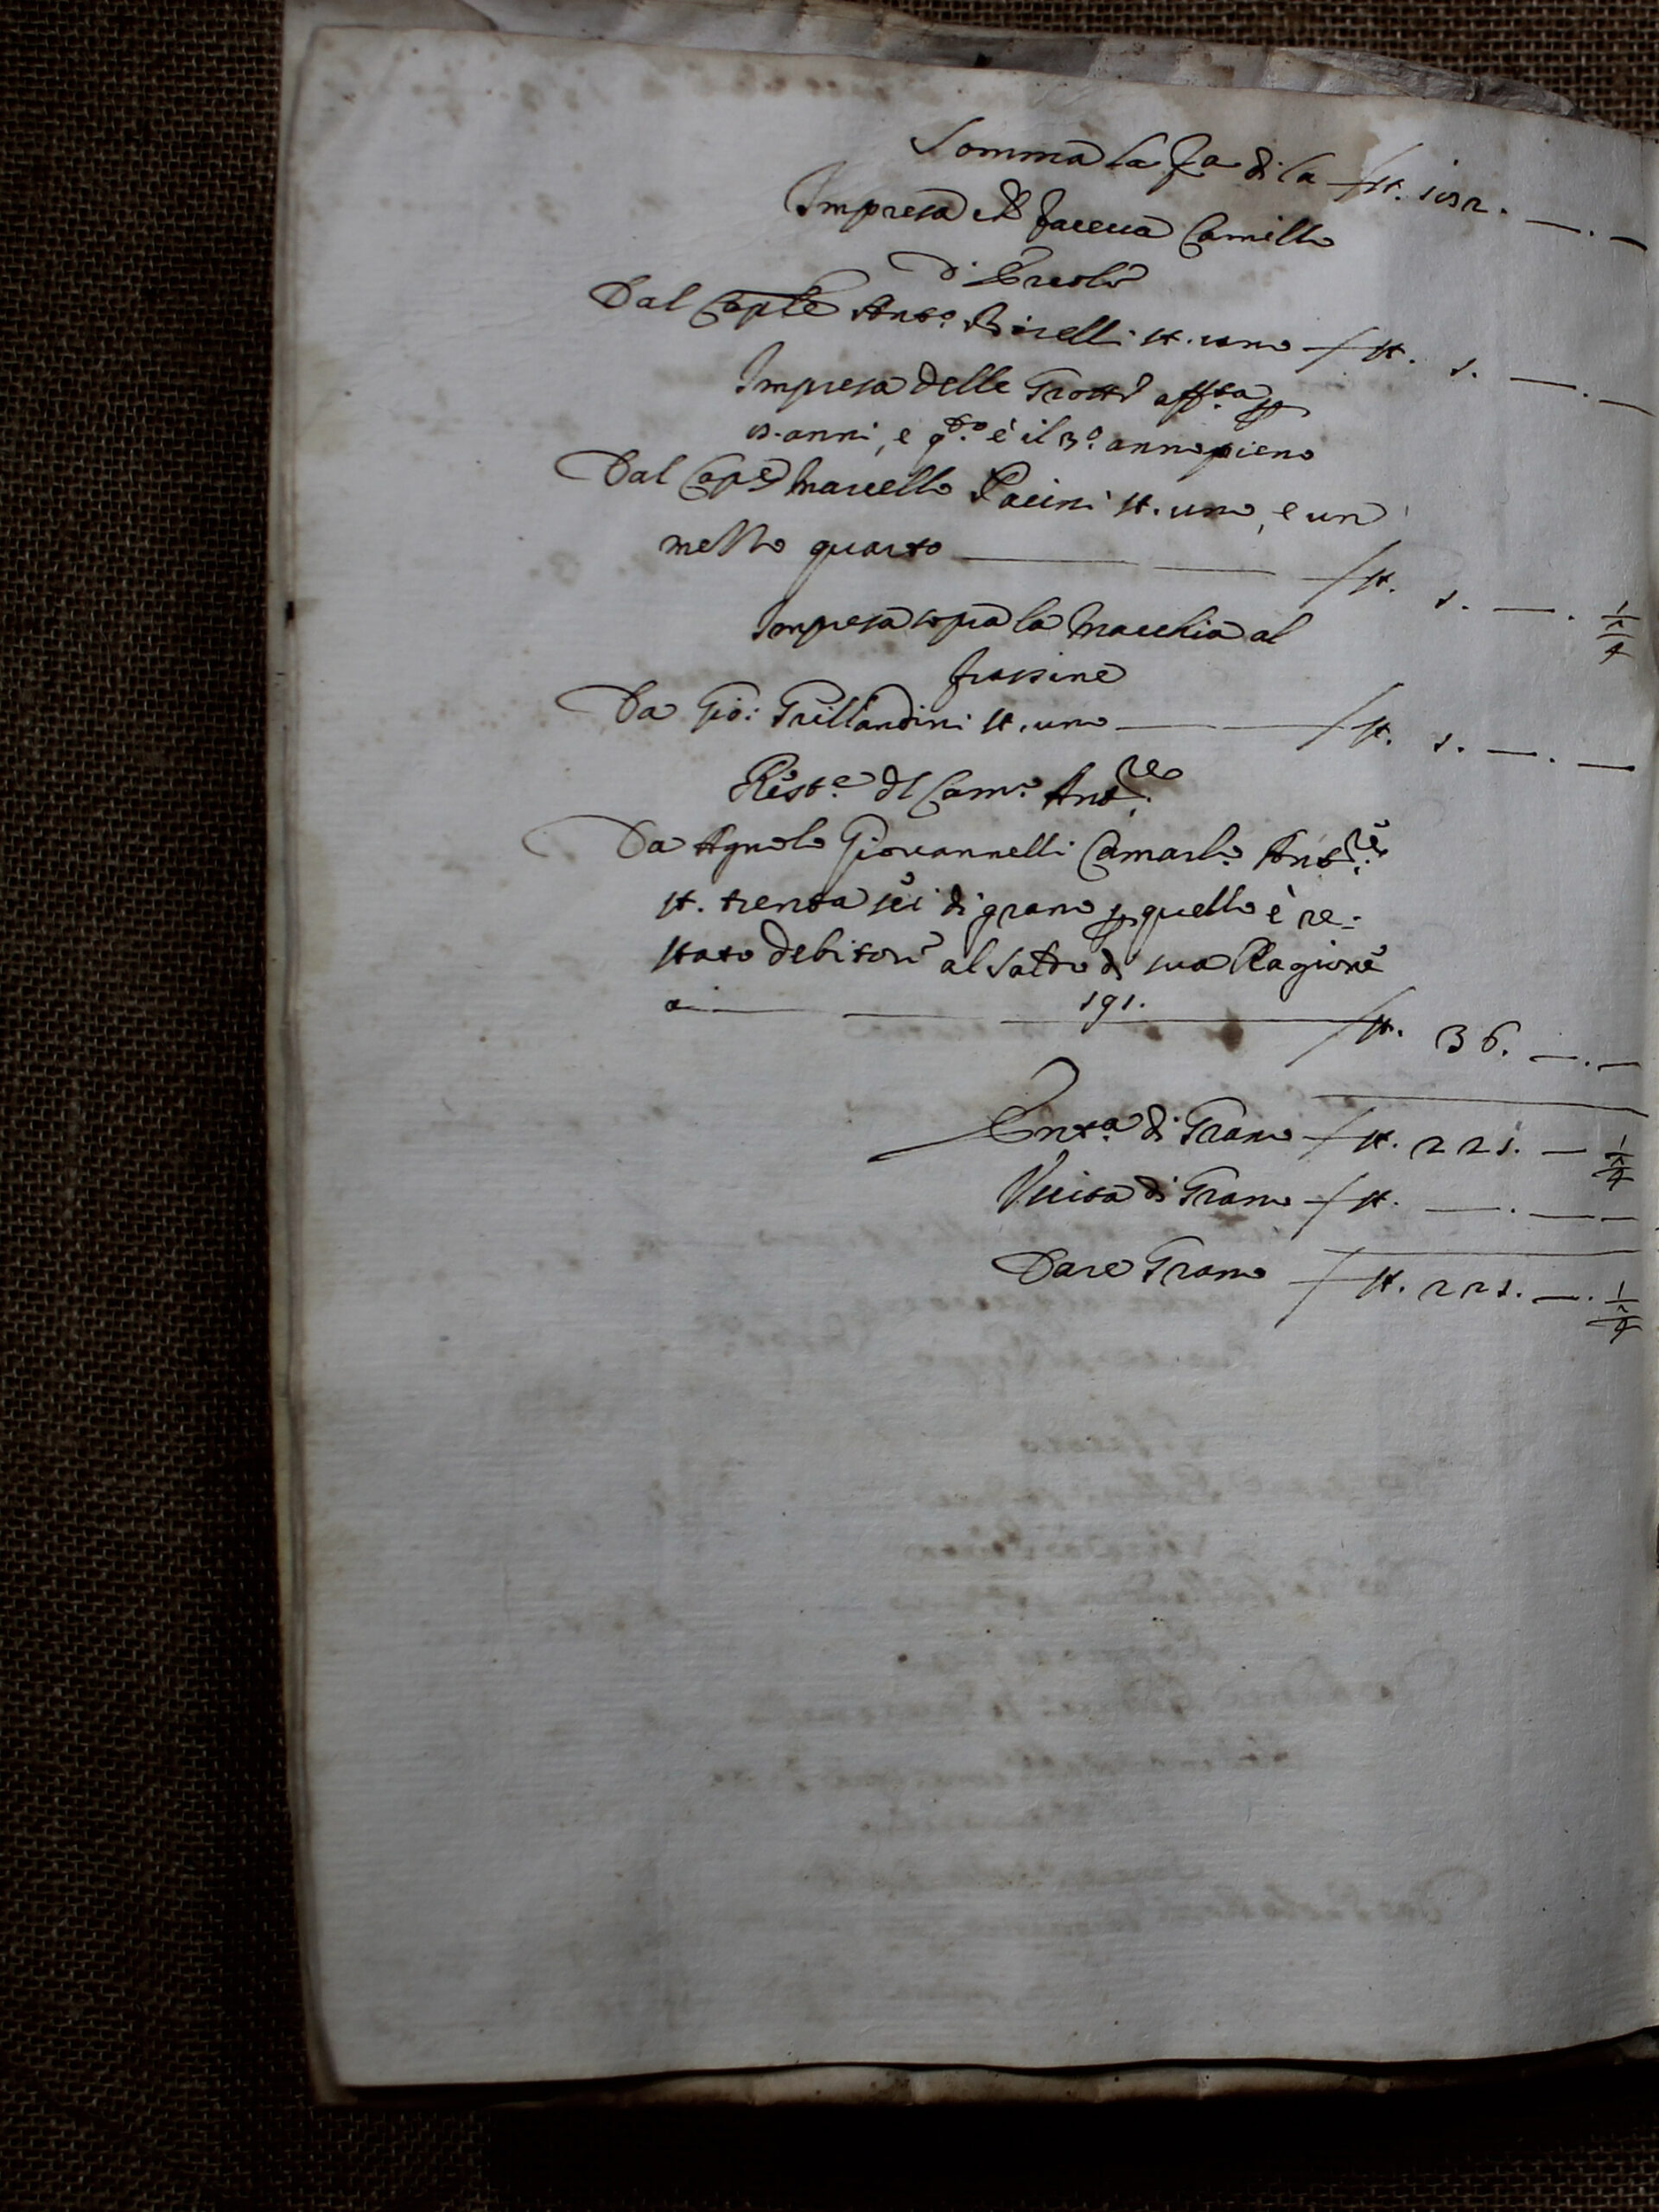 Somma la fa di la st. 182. —. —
Impresa che faceva Camillo
d'Ercole
Dal Caple Anto: Borelli st. uno st. 1. —. —
Impresa delle Grotte affta p
anni, e qdo è il 3o. anno pieno
Dal Caple Marcello Pacini st. uno, e un
mezzo quarto st. 1. —. 1/2/4
Impresa sopra la Macchia al
frassine
Da Gio: Grillandini st. uno st. 1. —. —
Resto dl Camo Antre:
Da Agnolo Giovannelli Camarlo. Antre:
st. trenta sei di grano p quello è re:
stato debitore al saldo di sua Ragione
a 191. st. 36. —. —
Entta di Grano st. 221. — 1/2/4
Uscita di Grano st. —. — —
Dare Grano st. 221. —. 1/2/4